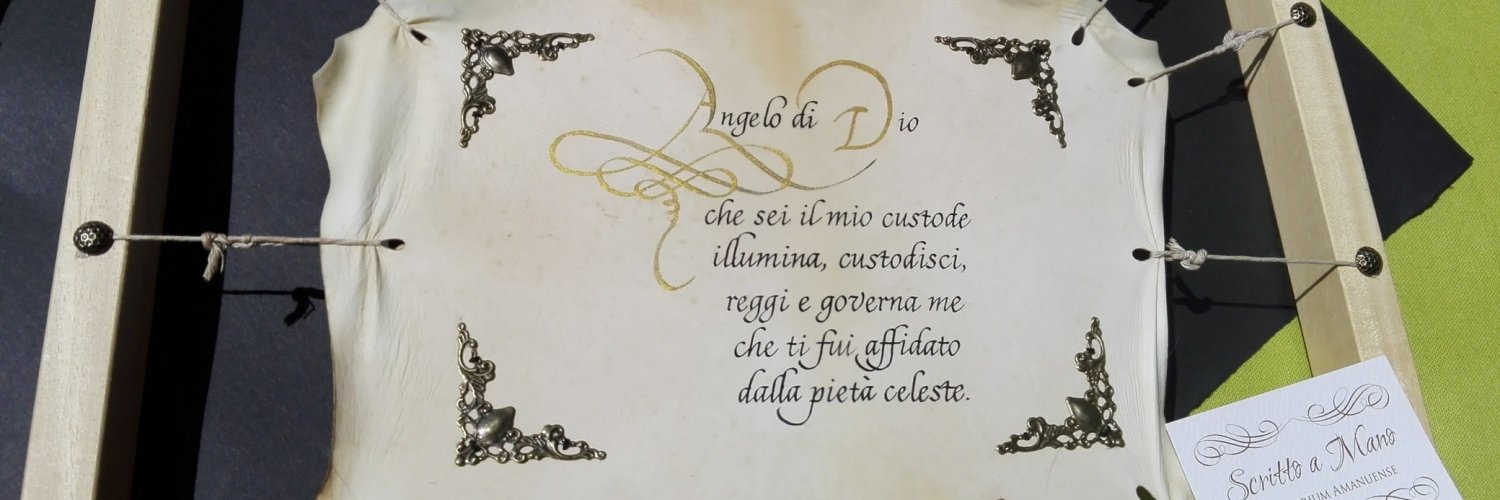 Angelo di Dio
che sei il mio custode
illumina, custodisci,
reggi e governa me
che ti fui affidato
dalla pietà celeste.
Scritto a Mano
Amanuense